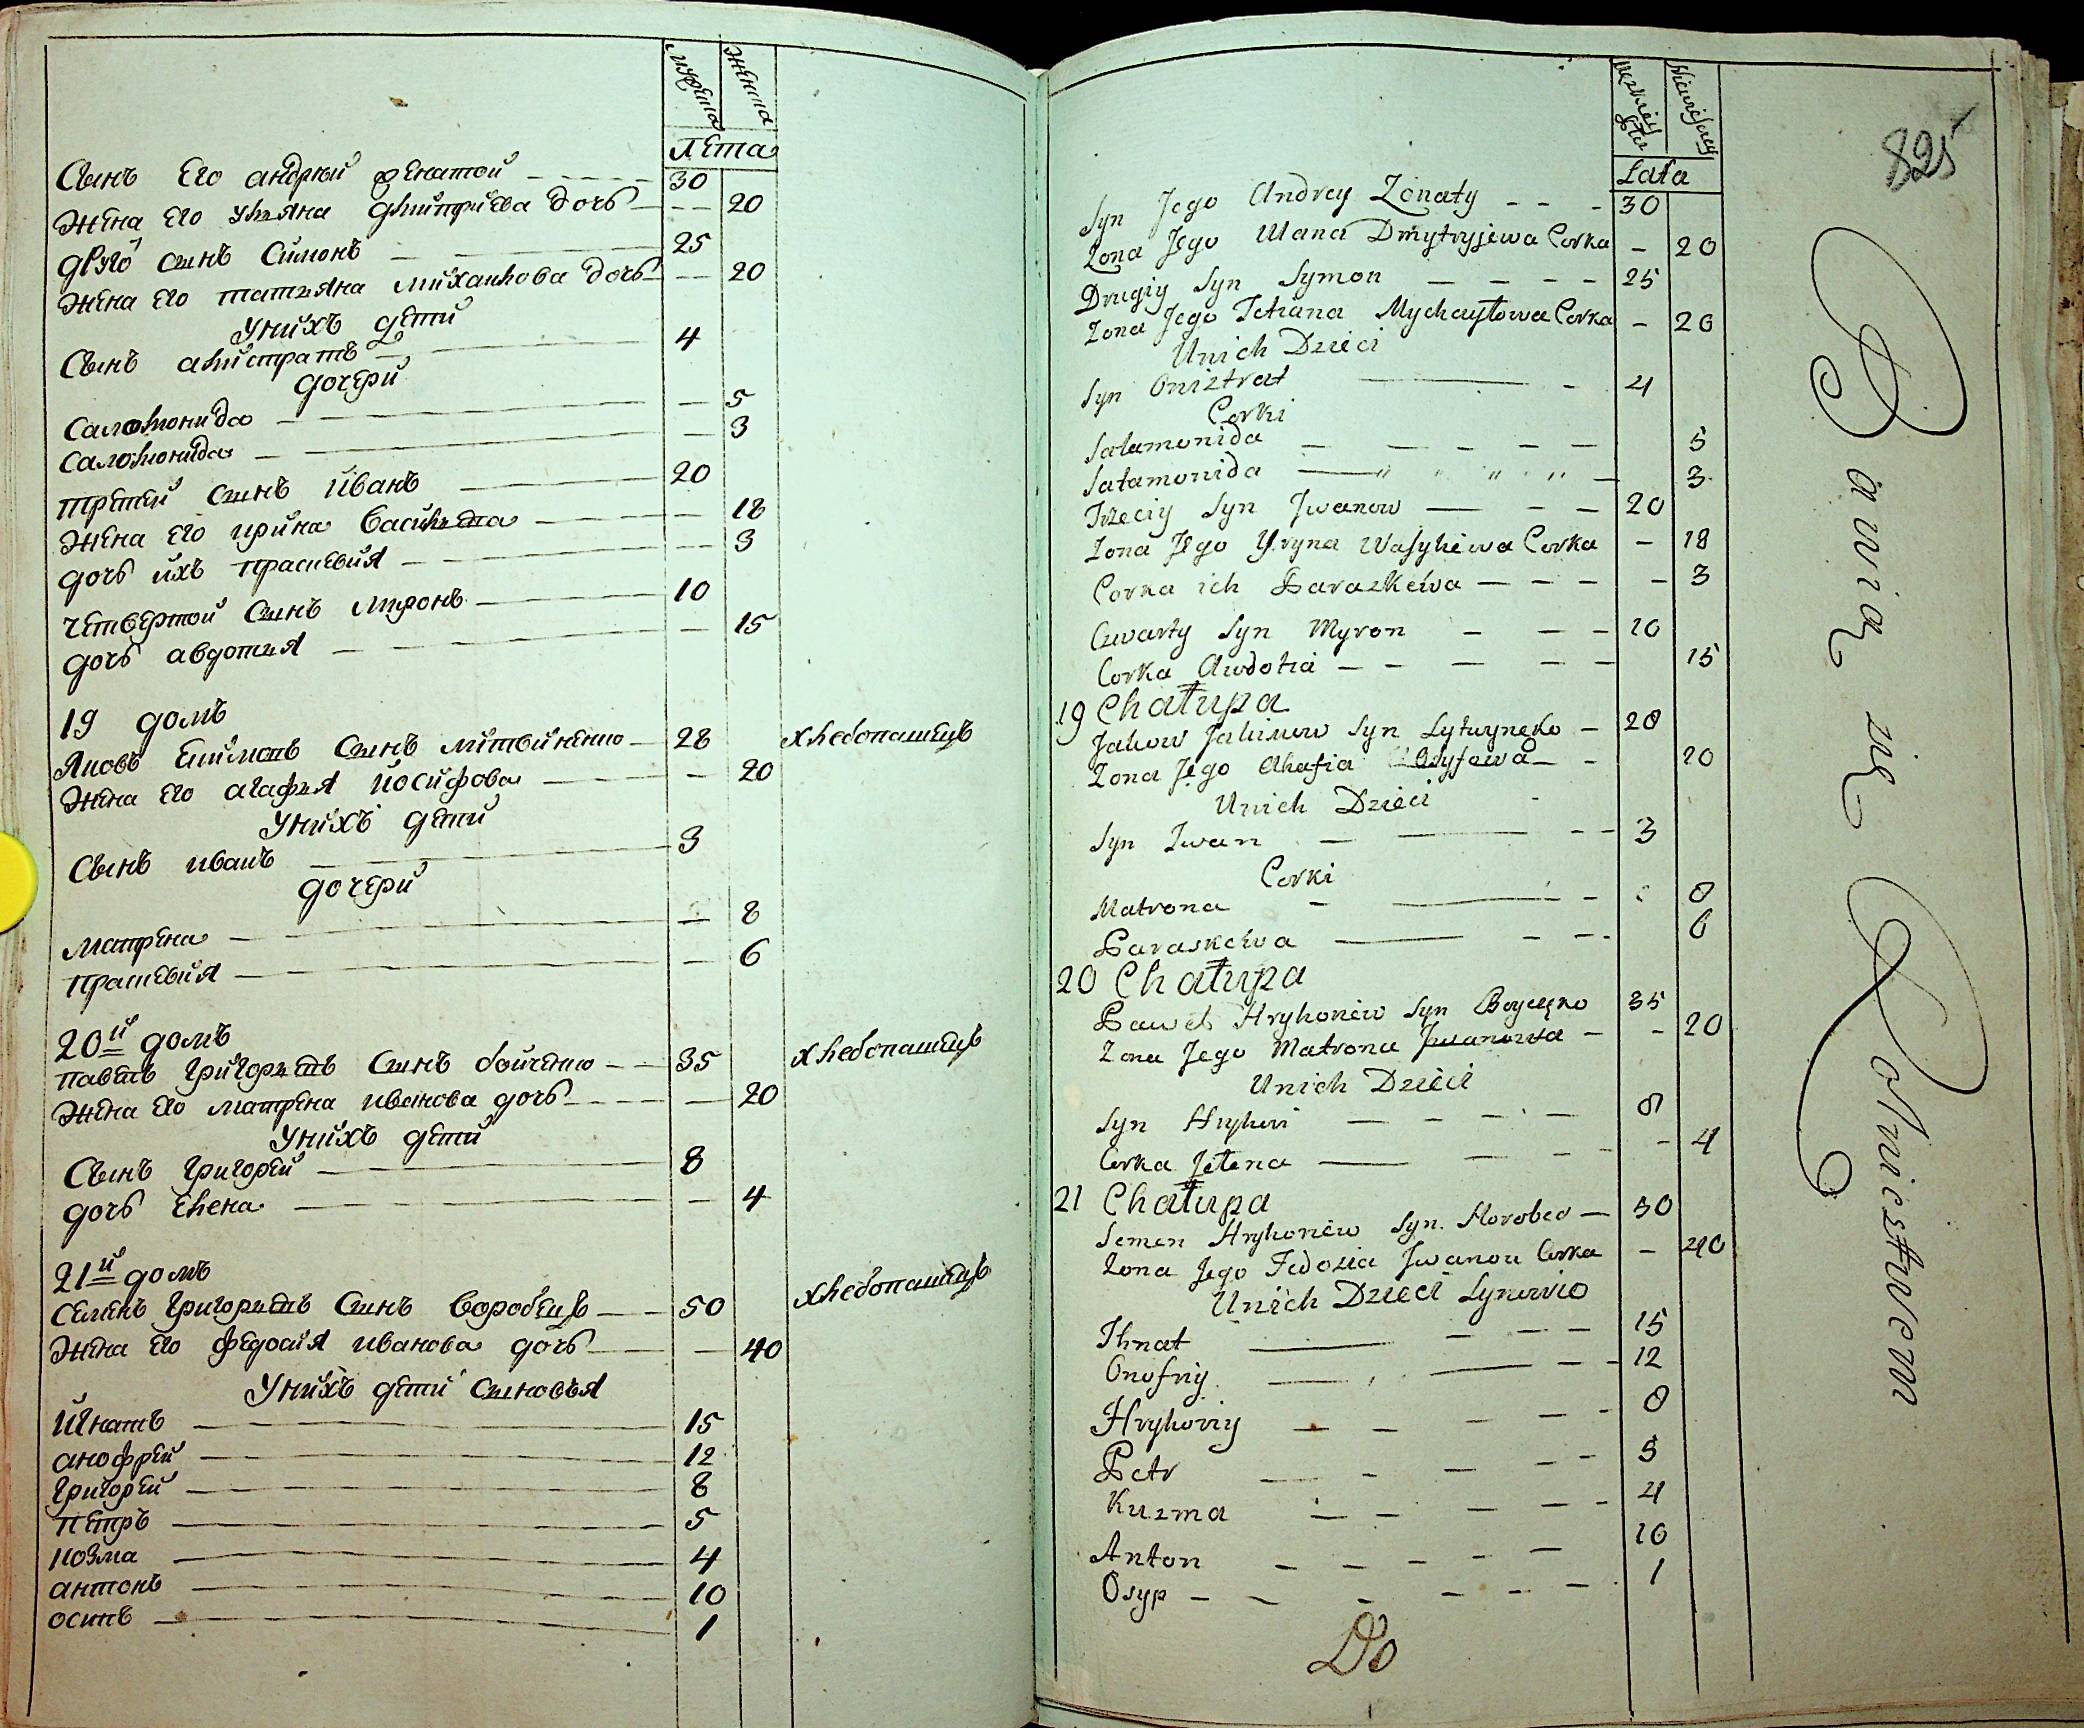 мужеска
женска
Лета
Сынъ его андрей женатой 30
жена его ульяна дмитриева дочь 20
другой сынъ Симонъ 25
жена его татьяна михаилова дочь 20
у нихъ дети
Сынъ алистратъ 4
дочери
Саломонида 5
Саломонида 3
третей сынъ Иванъ 20
жена его ирина васильева 18
дочь ихъ праскевия 3
четвертой сынъ миронъ 10
дочь авдотья 15
19 домъ
Яковъ сынъ литвиненко 28 хлебопашецъ
жена его агафья йосифова 20
у нихъ дети
Сынъ иванъ 3
дочери
матрена 8
праскевия 6
20й домъ
павелъ григорьевъ сынъ бойченко 35 хлебопашецъ
жена его матрена иванова дочь 20
у нихъ дети
Сынъ григорей 8
дочь елена 4
21й домъ
семенъ григорьевъ сынъ воробецъ 50 хлебопашецъ
жена его федосия иванова дочь 40
у нихъ дети сыновья
Игнатъ 15
анофрей 12
григорей 8
петръ 5
козма 4
антонъ 10
осипъ 1
825
Lata
Syn Jego Andrey Zonaty 30
Zona Jego Ulana Dmytryjewa Corka 20
Drugiy Syn Symon 25
Zona Jego Tetiana Mychayłowa Corka 20
Unich Dzieci
Syn Onistrat 4
Corki
Sałamonida 5
Sałamonida 3
Trzeciy Syn Jwanow 20
Zona Jego Yryna Wasyliewa Corka 18
Corka ich Paraskewa 3
Czwarty Syn Myron 10
Corka Awdotia 15
19 Chałupa
Jakow Syn Lytwynenko 28
Zona Jego Ahafia Osyfowa 20
Unich Dzieci
Syn Iwan 3
Corki
Matrona 8
Paraskewa 6
20 Chałupa
Paweł Hryhoriew Syn Boyczenko 35
Zona Jego Matrona Jwanowa 20
Unich Dzieci
Syn Hryhori 8
Corka Jełena 4
21 Chałupa
Semen Hryhoriew Syn Horobec 50
Zona Jego Fedosia Jwanou Corka 40
Unich Dzieci Synowio
Ihnat 15
Onofriy 12
Hryhoriy 8
Petr 5
Kuzma 4
Anton 10
Osyp 1
Do